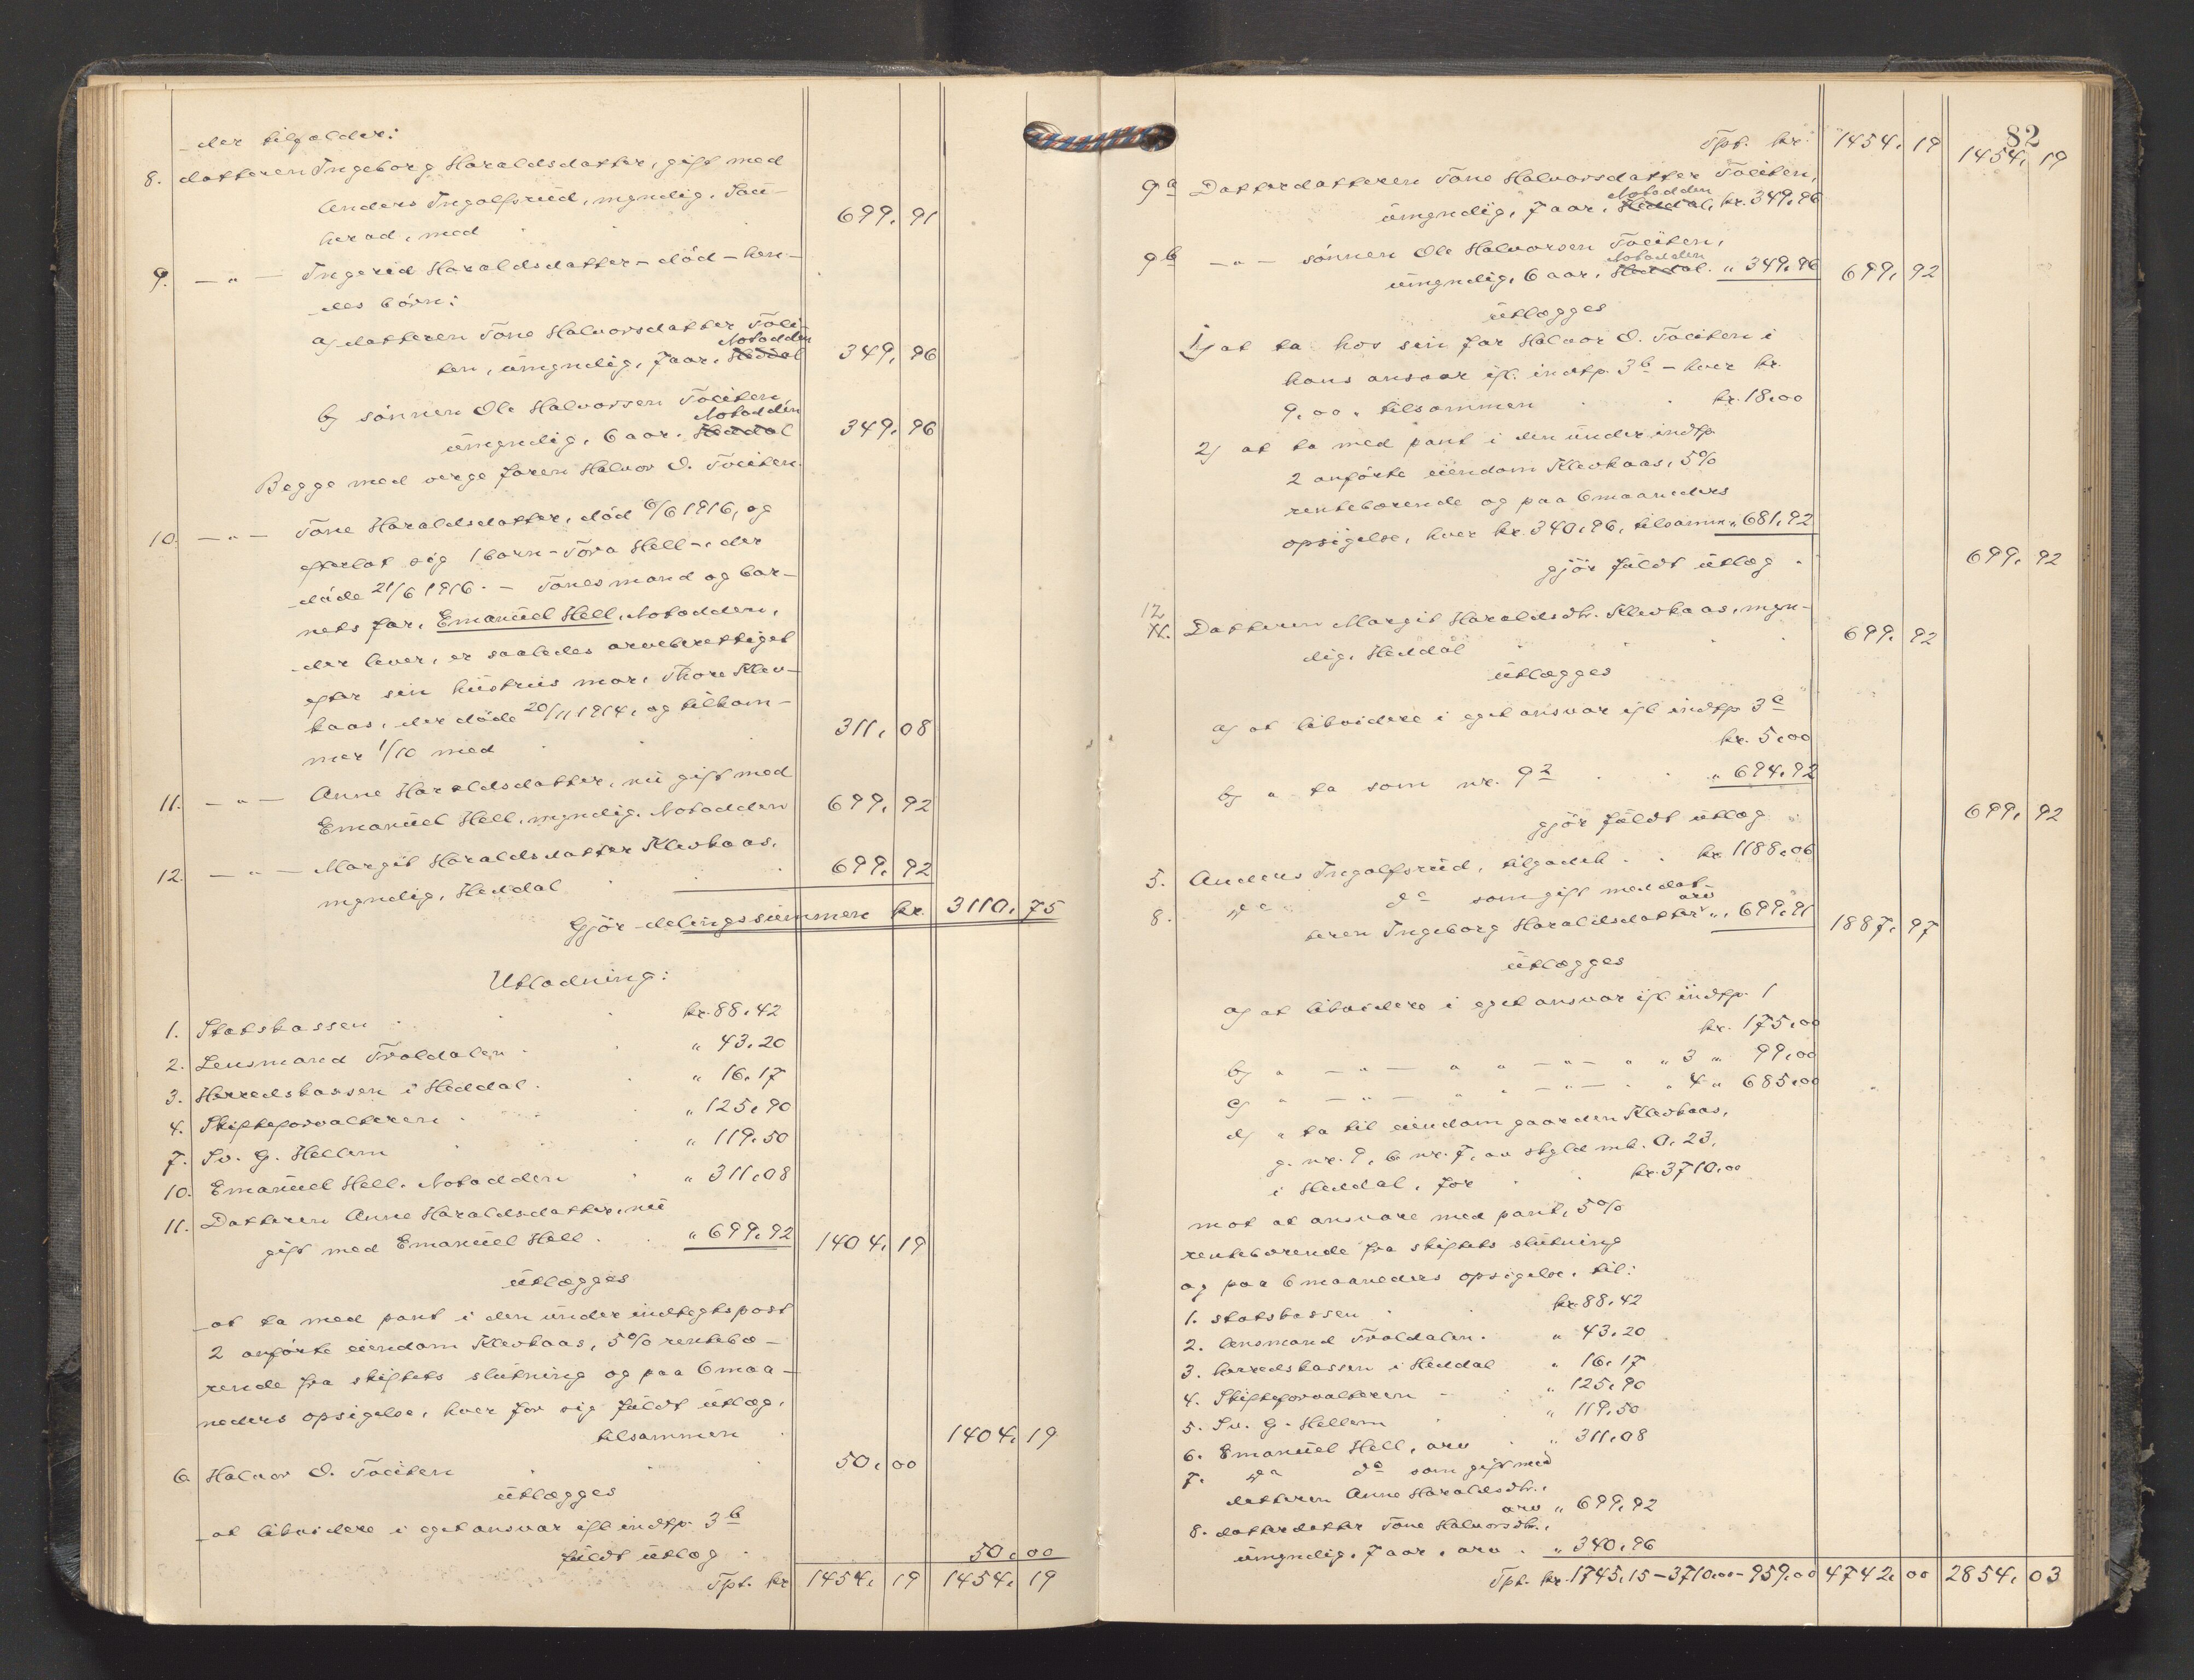 der tilfalder:
8. datteren Ingeborg Haraldsdatter, gift med
Anders Ingolfsrud, myndig, Sau-
herad, med 699. 91
9. — " — Ingerid Haraldsdatter – död – hen-
des börn:
a) datteren Töne Halvorsdatter Töli-
Notodden
ten, umyndig, 7 aar, Heddal 349. 96
b) sönnen Ole Halvorsen
Notodden
umyndig, 6 aar. Heddal 349. 96
Begge med verge faren Halvor O.
10. — " — Töne Haraldsdatter, död 6/6 1916, og
efterlot sig 1 barn – Tora Hell –, der
döde 21/6 1916. – Tönes mand og bar-
nets far, Emanuel Hell, Notodden,
der lever, er saaledes arveberettiget
efter sin hustrus mor, Thore Klev-
kaas, der döde 20/11 1914, og tilkom-
mer 1/10 med 311. 08
11. — " — Anne Haraldsdatter, nu gift med
Emanuel Hell, myndig, Notodden 699. 92
12. — " — Margit Haraldsdatter Klevkaas,
myndig, Heddal 699. 92
Gjör delingssummen kr. 3110. 75
Utlodning:
1. Statskassen kr. 88.42
2. Lensmand Troldalen " 43.20
3. Herredskassen i Heddal " 16.17
4. Skifteforvalteren " 125.90
7. Sv. G. Hellem " 119.50
10. Emanuel Hell, Notodden " 311.08
11. Datteren Anne Haraldsdatter, nu
gift med Emanuel Hell " 699.92 1404. 19
utlægges
at ta med pant i den under indtegtspost
2 anförte eiendom Klevkaas, 5% renteba-
rende fra skiftets slutning og paa 6 maa-
neders opsigelse, hver for sig fuldt utlæg,
tilsammen 1404. 19
6. Halvor O. 50. 00
utlægges
at likvidere i eget ansvar ifl. indtp. 3 b
fuldt utlæg 50.00
Tpt. kr. 1454. 19 1454. 19
82
Tpt. kr. 1454. 19 1454. 19
9 a Datterdatteren Töne Halvorsdatter
Notodden
umyndig, 7 aar, Heddal, kr. 349.96
9 b — " — sönnen Ole Halvorsen
Notodden
umyndig, 6 aar, Heddal. " 349.96 699. 92
utlægges
1) at ta hos sin far Halvor O. i
hans ansvar ifl. indtp. 3 b – hver kr.
9.00, tilsammen kr. 18.00
2) at ta med pant i den under indtp.
2 anförte eiendom Klevkaas, 5%
rentebærende og paa 6 maaneders
opsigelse, hver kr. 340.96, tilsamm. " 681.92
gjör fuldt utlæg 699. 92
12
11. Datteren Margit Haraldsdtr. Klevkaas, myn-
dig, Heddal 699. 92
utlægges
a) at likvidere i eget ansvar ifl. indtp. 3 c
kr. 5.00
b) " ta som nr. 9 2 " 694.92
gjör fuldt utlæg 699. 92
5. Anders Ingolfsrud, tilgodeh. kr. 1188.06
8. do do som gift med dat-
arv
teren Ingeborg Haraldsdatter " 699.91 1887. 97
utlægges
a) at likvidere i eget ansvar ifl. indtp. 1
kr. 175.00
b) " — " — " " — " — " " 3 " 99.00
c) " — " — " — " — " " 4 " 685.00
d) " ta til eiendom gaarden Klevkaas,
g. nr. 9, b. nr. 7, av skyld mk. 0.23,
i Heddal, for kr. 3710.00
mot at ansvare med pant, 5%
rentebærende fra skiftets slutning
og paa 6 maaneders opsigelse, til:
1. statskassen kr. 88.42
2. lensmand Troldalen. " 43.20
3. herredskassen i Heddal " 16.17
4. Skifteforvalteren " 125.90
5. Sv. G. Hellem " 119.50
6. Emanuel Hell, arv " 311.08
7. do do som gift med
datteren Anne Haraldsdtr.,
arv " 699.92
8. datterdatter Töne Halvorsdtr.,
umyndig, 7 aar, arv " 340.96
Tpt. kr. 1745.15 – 3710.00 – 959.00 4742. 00 2854. 03